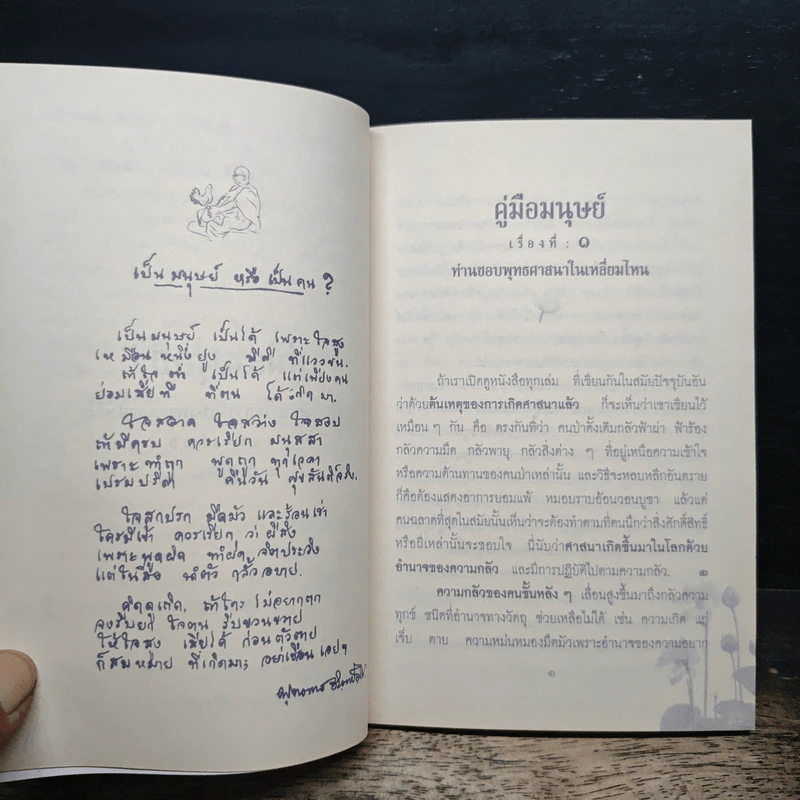 เป็นมนุษย์ หรือ เป็นคน?
เป็นมนุษย์ เป็นได้ เพราะใจสูง
เหมือนหนึ่งยูง มีดี ที่แววขน
ถ้าใจต่ำ เป็นได้ แต่เพียงคน
ย่อมเสียที ที่ตน ได้เกิดมา.
ใจสอาด ใจสว่าง ใจสงบ
ถ้ามีครบ ควรเรียก มนุสสา
เพราะทำถูก พูดถูก ทุกเวลา
เปรมปรีดา คืนวัน ศุขสันติ์จริง.
ใจสกปรก มืดมัว และร้อนเร่า
ใครมีเข้า ควรเรียก ว่าผีสิง
เพราะพูดผิด ทำผิด จิตประวิง
แต่ในสิ่ง นำตัว กลั้วอบาย.
คิดดูเถิด, ถ้าใคร ไม่อยากตก
จงรีบยก ใจตน รีบขวนขวาย
ให้ใจสูง เสียได้ ก่อนตัวตาย
ก็สมหมาย ที่เกิดมา; อย่าเชือนเอยฯ
พุทธทาส อินทปัญโญ
คู่มือมนุษย์
เรื่องที่ : ๑
ท่านชอบพุทธศาสนาในเหลี่ยมไหน
ถ้าเราเปิดดูหนังสือทุกเล่ม ที่เขียนกันในสมัยปัจจุบันอัน
ว่าด้วยต้นเหตุของการเกิดศาสนาแล้ว ก็จะเห็นว่าเขาเขียนไว้
เหมือน ๆ กัน คือ ตรงกันที่ว่า คนป่าดั้งเดิมกลัวฟ้าผ่า ฟ้าร้อง
กลัวความมืด กลัวพายุ กลัวสิ่งต่าง ๆ ที่อยู่เหนือความเข้าใจ
หรือความต้านทานของคนป่าเหล่านั้น และวิธีจะหลบหลีกอันตราย
ก็คือต้องแสดงอาการยอมแพ้ หมอบราบอ้อนวอนบูชา แล้วแต่
คนฉลาดที่สุดในสมัยนั้นเห็นว่าจะต้องทำตามที่คนนึกว่าสิ่งศักดิ์สิทธิ์
หรือผีเหล่านั้นจะชอบใจ นี่นับว่าศาสนาเกิดขึ้นมาในโลกด้วย
อำนาจของความกลัว และมีการปฏิบัติไปตามความกลัว. ๑
ความกลัวของคนชั้นหลัง ๆ เลื่อนสูงขึ้นมาถึงกลัวความ
ทุกข์ ชนิดที่อำนาจทางวัตถุ ช่วยเหลือไม่ได้ เช่น ความเกิด แก่
เจ็บ ตาย ความหม่นหมองมืดมัวเพราะอำนาจของความอยาก
๑